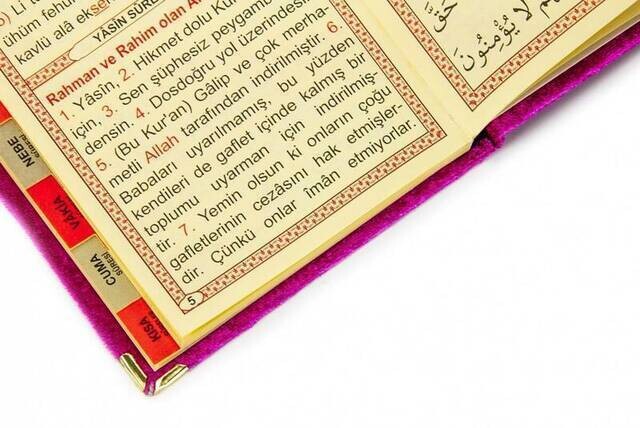 YÂSÎN SÛR
Rahman ve Rahim olan Al
1. Yâsîn, 2. Hikmet dolu Kur
için, 3. Sen şüphesiz peygamb
densin. 4. Dosdoğru yol üzerindesin
5. (Bu Kur'an) Gâlip ve çok merha-
metli Allah tarafından indirilmiştir. 6.
Babaları uyarılmamış, bu yüzden
kendileri de gaflet içinde kalmış bir
toplumu uyarman için indirilmiş-
tir. 7. Yemin olsun ki onların çoğu
gafletlerinin cezasını hak etmişler-
dir. Çünkü onlar îmân etmiyorlar.
5
NEBE
VÂKIA
CUMA
SÛRESİ
KISA
حَقَّ
لَا يُؤْمِنُونَ